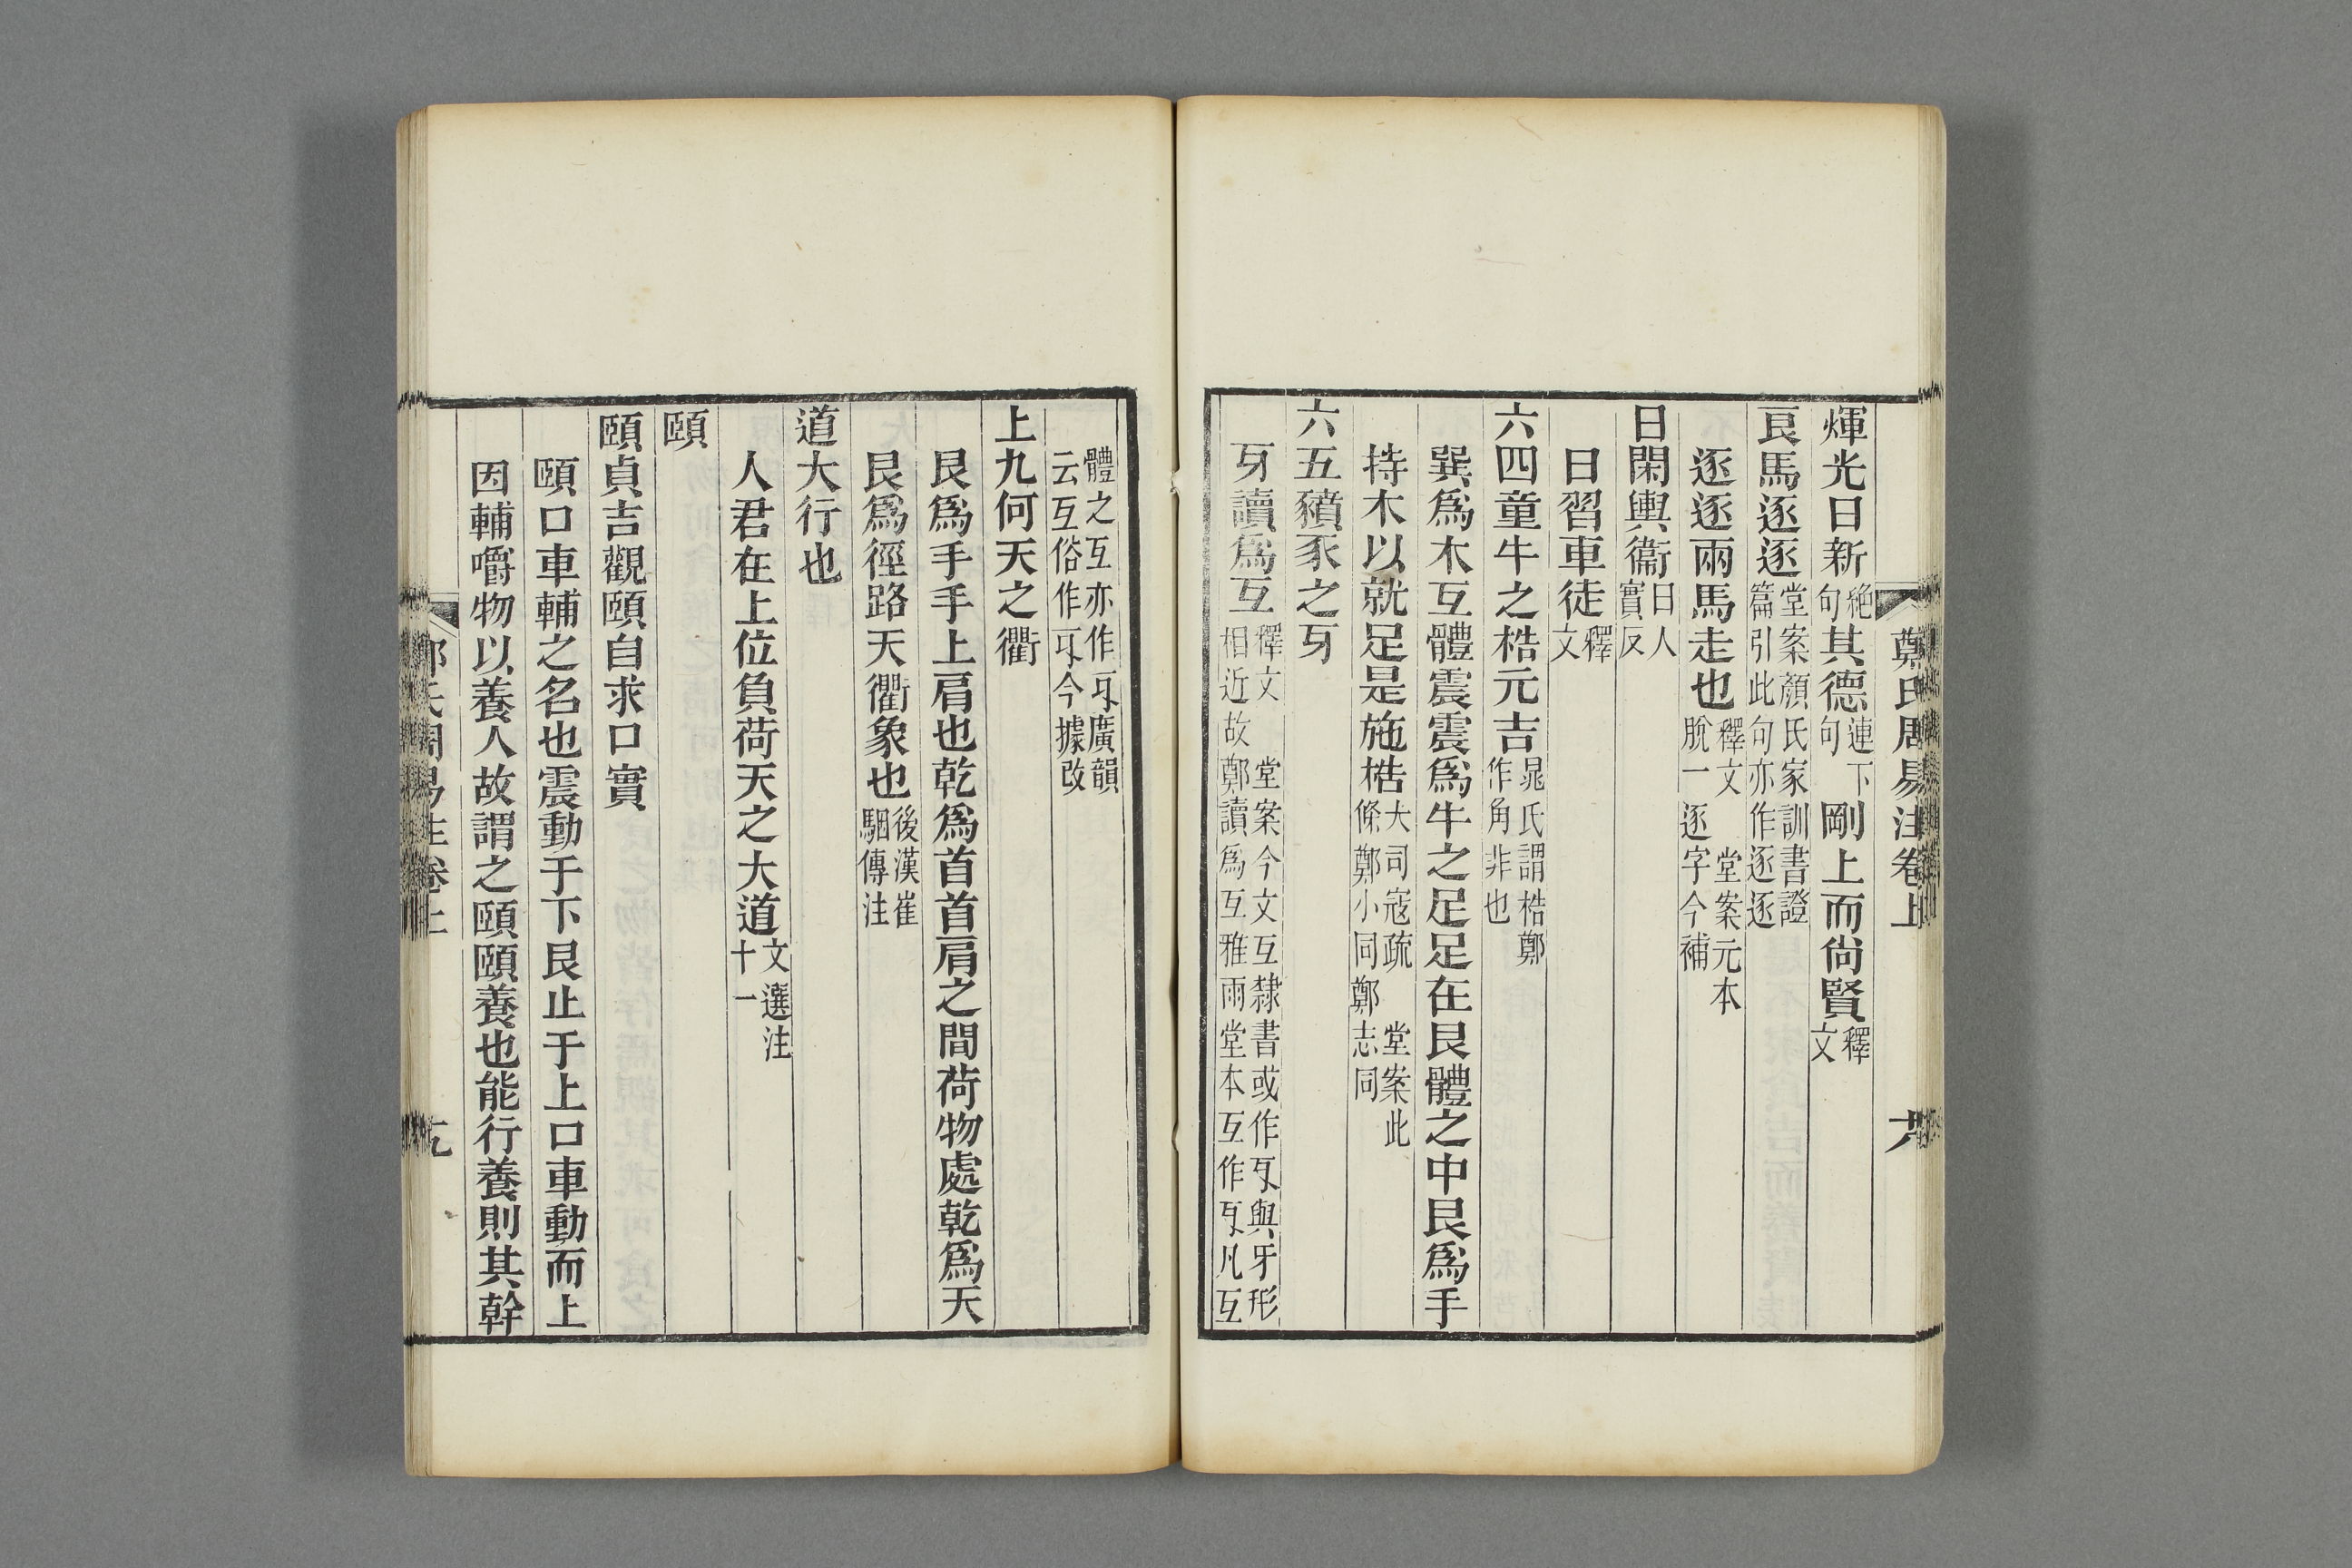 鄭氏周易注卷上 六
煇光日新絕句其德連下句剛上而尙賢釋文
良馬逐逐堂案顏氏家訓書證篇引此句亦作逐逐
逐逐兩馬走也釋文 堂案元本脫一逐字今補
日閑輿衞日人實反
日習車徒釋文
六四童牛之梏元吉晁氏謂梏鄭作角非也
巽爲木互體震震爲牛之足足在艮體之中艮爲手
持木以就足是施梏大司寇疏 堂案此條鄭小同鄭志同
六五豶豕之㸦
㸦讀爲互釋文 堂案今文互隸書或作㸦與牙形相近故鄭讀爲互雅雨堂本互作㸦凡互
體之互亦作㸦廣韻云互俗作㸦今據改
上九何天之衢
艮爲手手上肩也乾爲首首肩之間荷物處乾爲天
艮爲徑路天衢象也後漢崔駰傳注
道大行也
人君在上位負荷天之大道文選注十一
頤
頤貞吉觀頤自求口實
頤口車輔之名也震動于下艮止于上口車動而上
因輔嚼物以養人故謂之頤頤養也能行養則其幹
氏周易注卷上